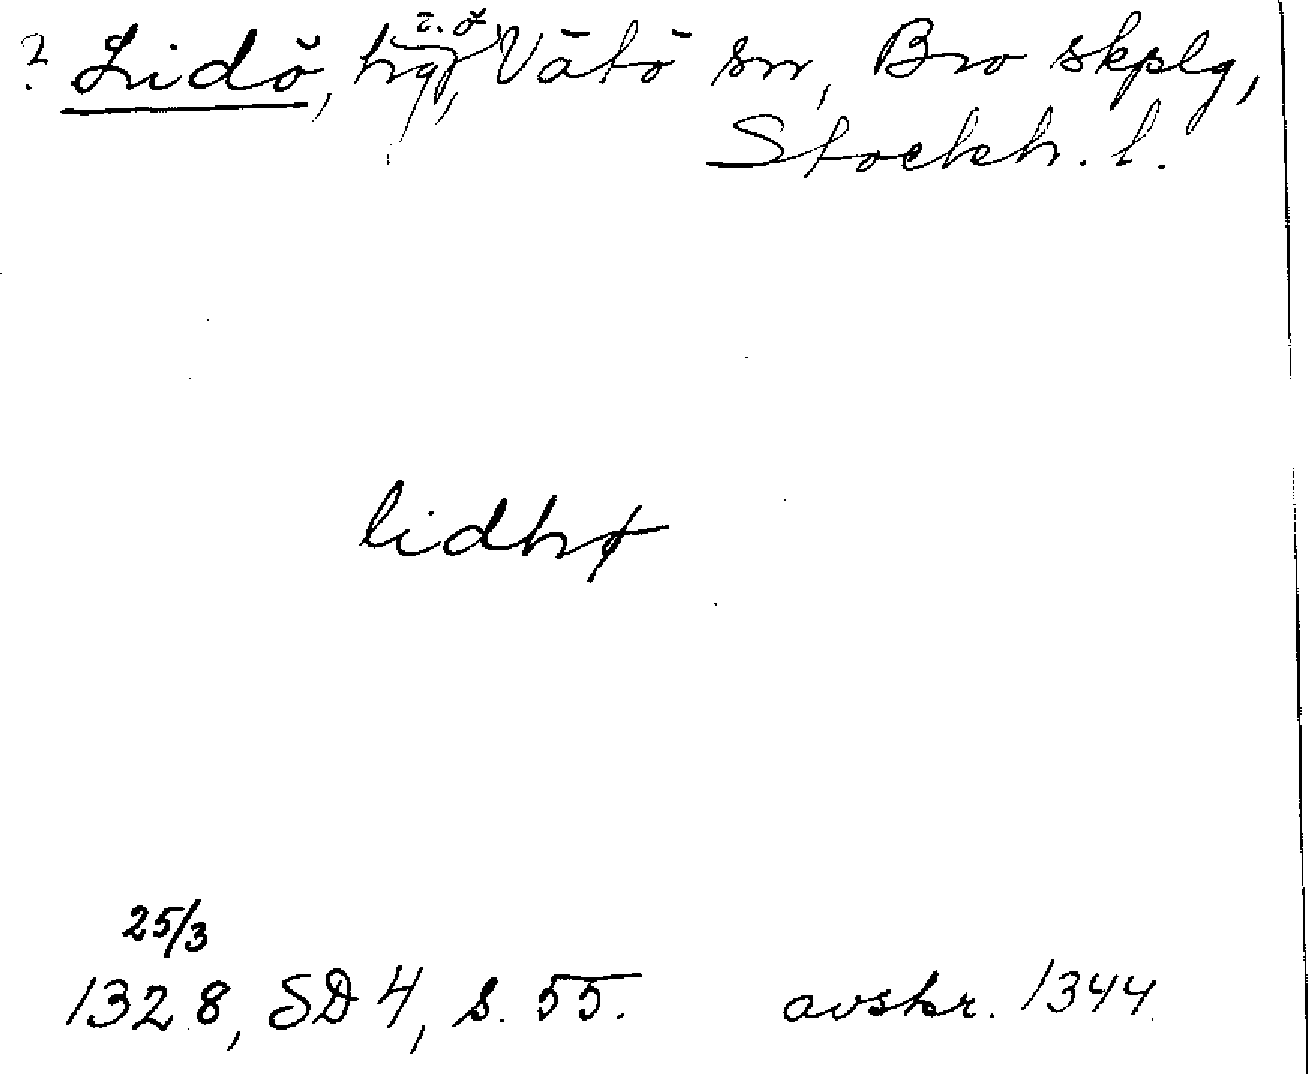 ? Lidö, hg, Vätö sn, Bro skplg,
Stockh. l.
lidhø
25/3
1328, SD 4, s. 55. avskr. 1344